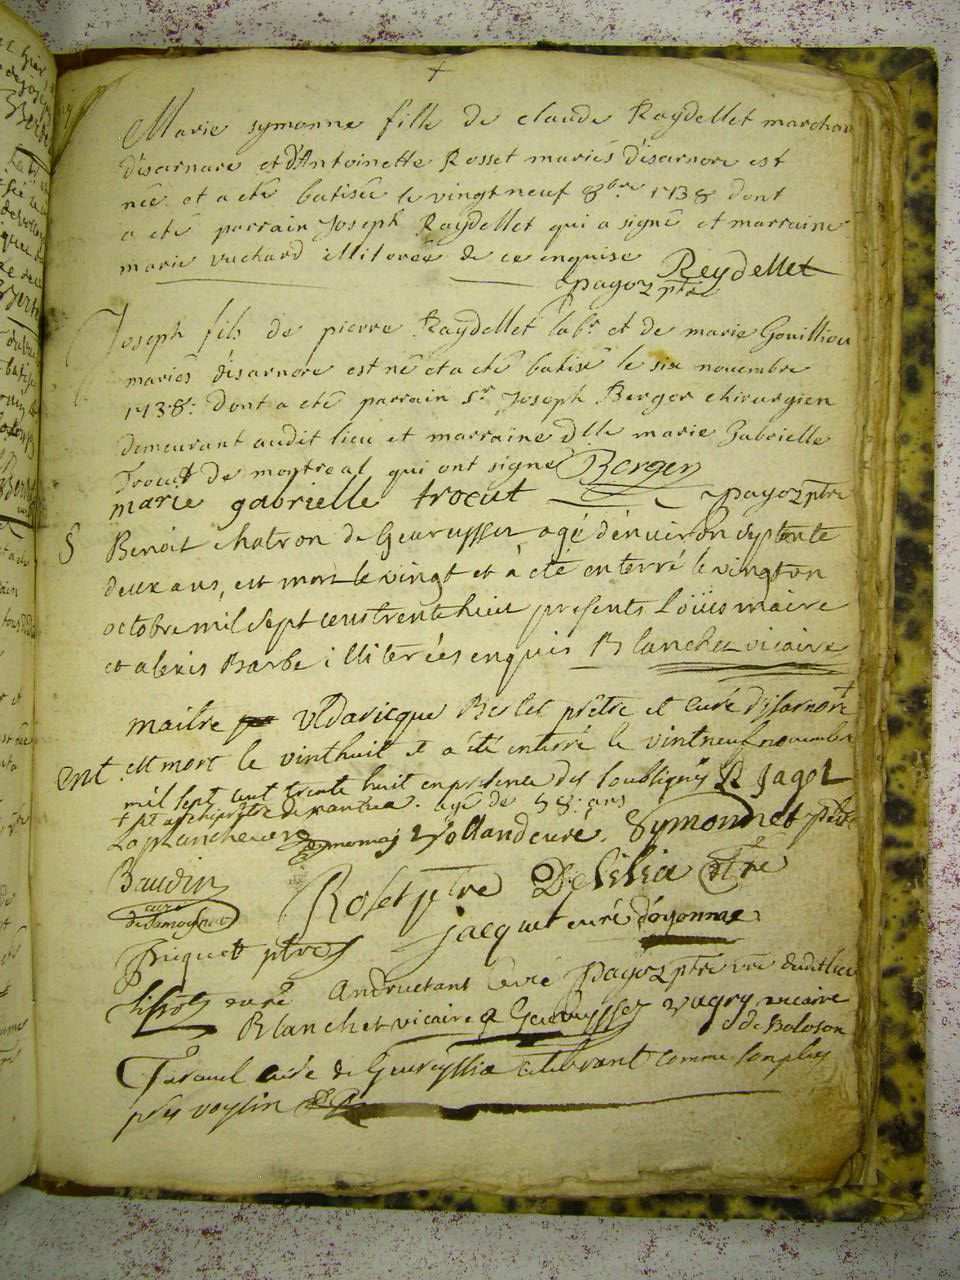 +
Marie symonne fille de claude Raydellet marchan
d'isarnore et d'Antoinette Rosset mariés d'isarnore est
née et a eté batisée le vingt neuf 8bre 1738 dont
a eté parrain Joseph Raydellet qui a signé et marraine
marie vuchard illiterée de ce enquise Reydellet
payoz ptre
Joseph fils de pierre Raydellet labr et de marie Gouilliou
mariés d'isarnore est né et a eté batisé le six novembre
1738: dont a eté parrain Sr Joseph Berger chirurgien
demeurant audit lieu et marraine dlle marie Gabrielle
Trocut de montreal qui ont signé Berger
marie gabrielle trocut payoz ptre
§ Benoit chatron de Geuruyssia agé d'énuiron septente
deux ans, est mort le vingt et à été enterré le vingt on
octobre mil sept cens trente huit presents Loüis maire
et alexis Barbe illiterées enquis Blanchet vicaire
maitre Vldaricque Berlet prêtre et curé d'isarnore +
ent. est mort le vinthuit et a été enterré le vintneuf novembre
mil sept cent trente huit en presence des soubsignés Jagot
+ et archiprêtre de nantua. agé de 58. ans
Laplanche curé Rolland curé. Symonnet ptre
Baudin
curé
de Samognat
Rolet ptre Delilia ptre
jacquet curé d'oyonna
piquet ptre
curé Andructant curé payoz ptre vre dudit lieu
Blanchet vicaire a Geuruyssia vugry vicaire
de Boloson
Taravel curé de Geuruyssia celebrant comme le plus
pres voysin